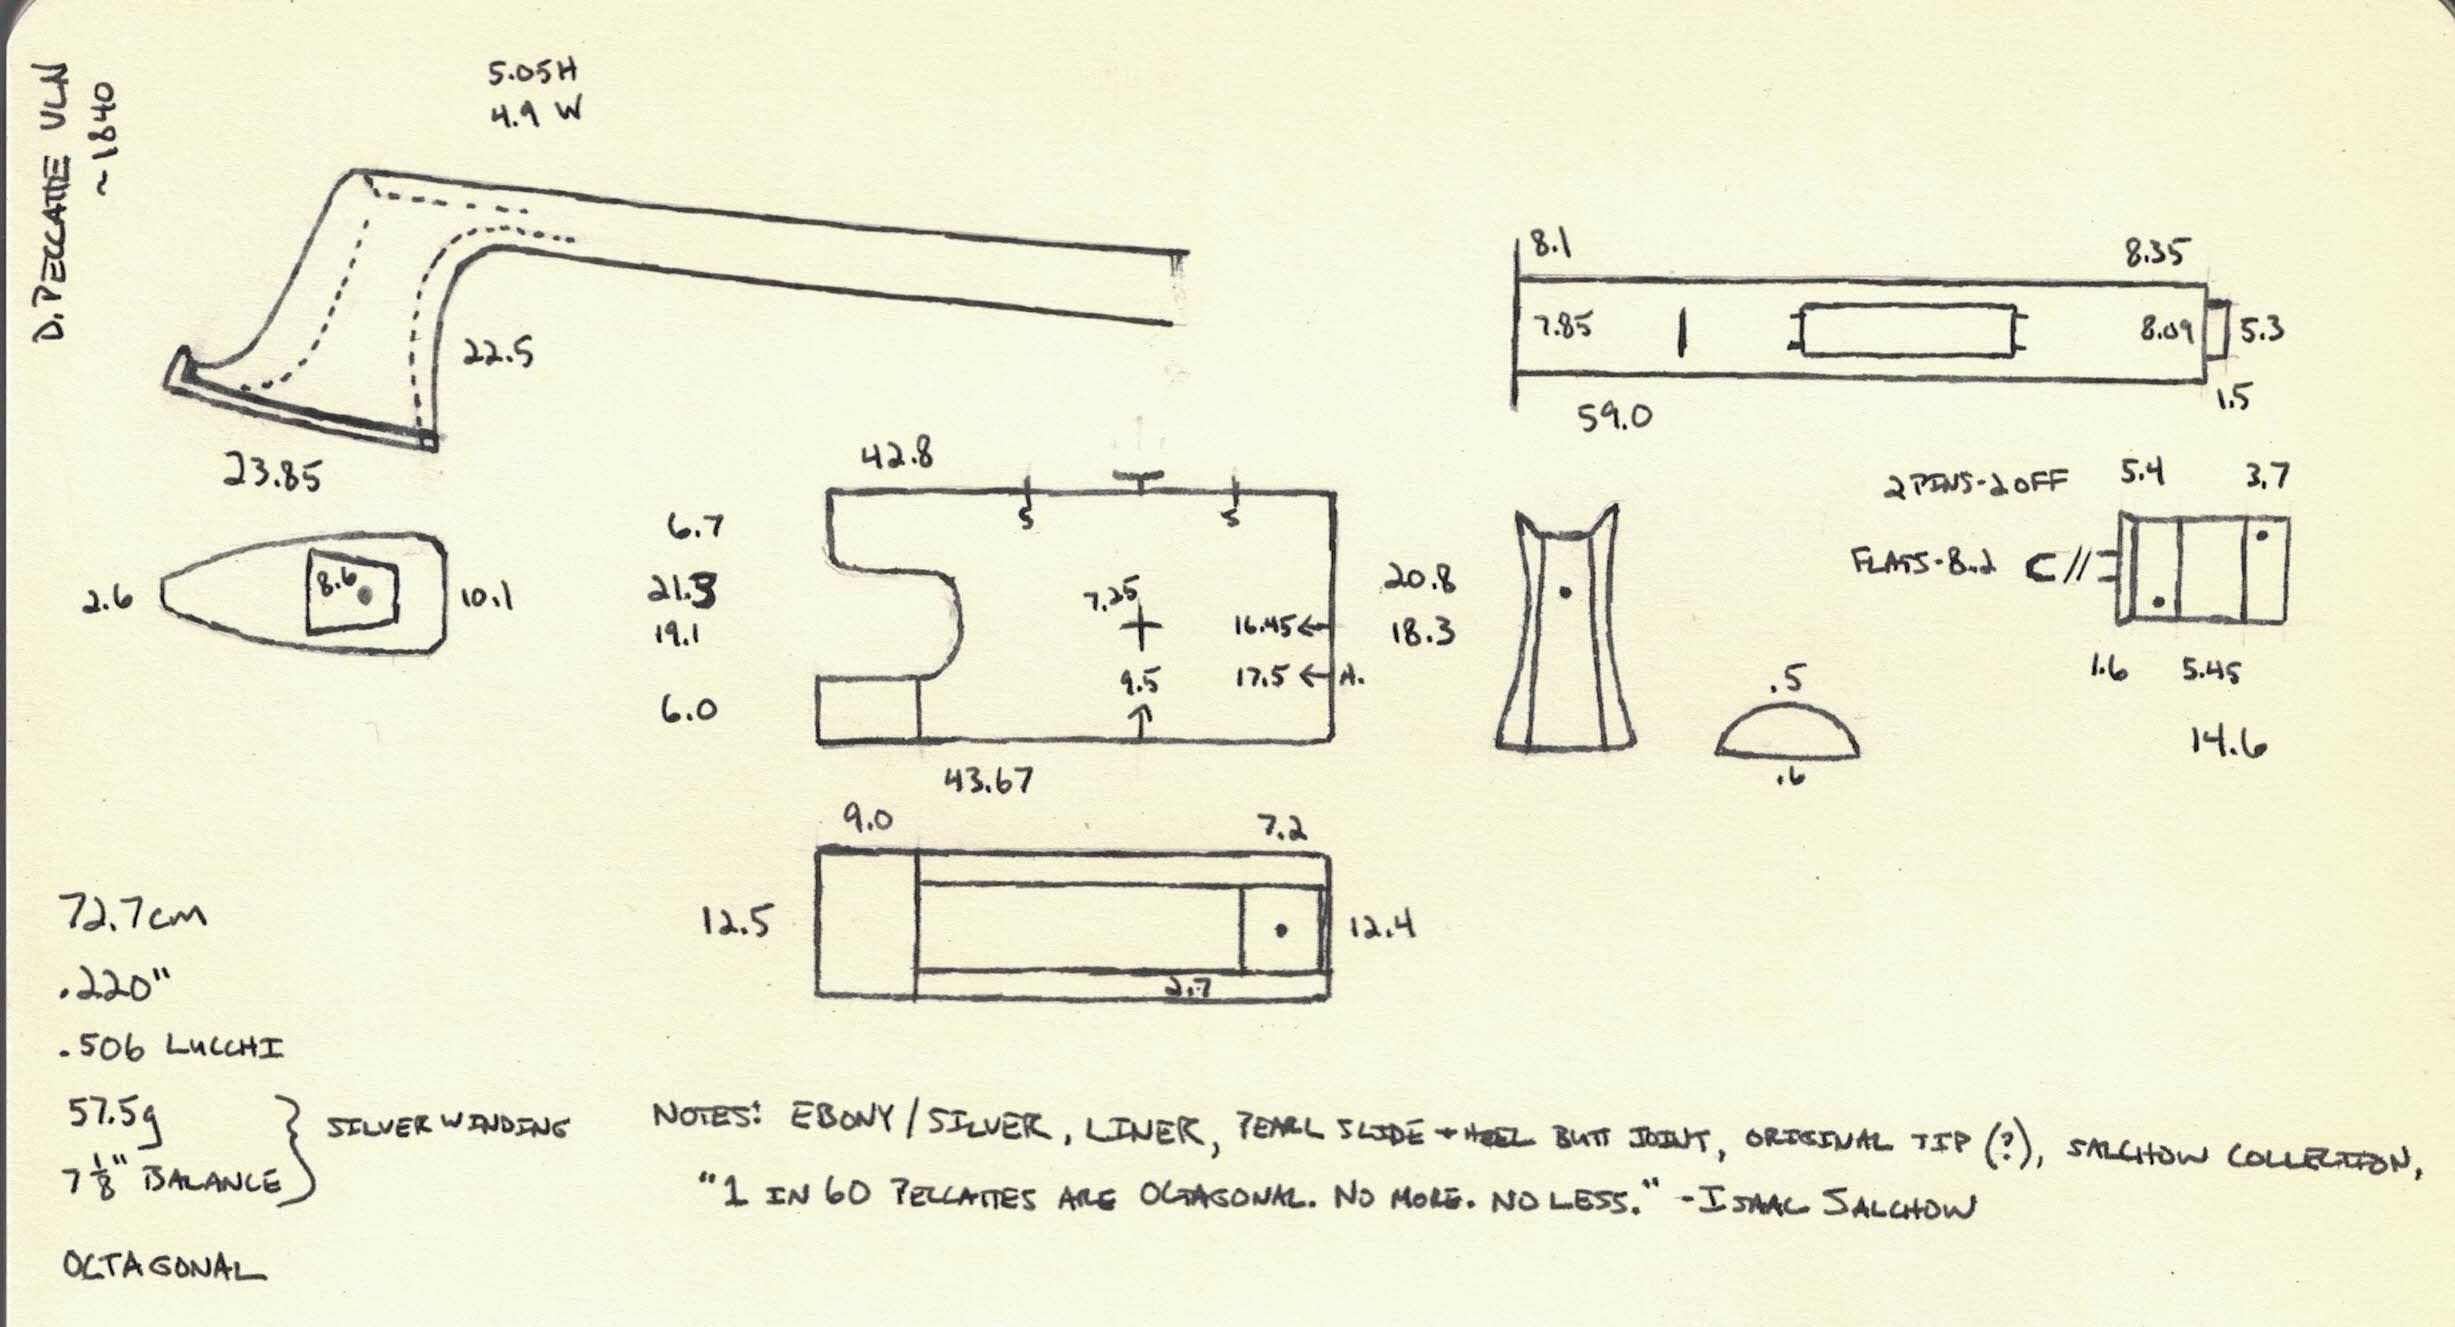 D. PECCATTE VLN
~1840
5.05H
4.9 W
22.5
23.85
2.6
8.6
10.1
8.1
8.35
7.85
8.09
5.3
1.5
59.0
42.8
5
5
6.7
21.3
19.1
6.0
7.25
16.45←
9.5
17.5← A.
20.8
18.3
43.67
.5
.6
2 PINS-2 OFF
5.4
3.7
FLATS-8.2
C//
1.6
5.45
14.6
9.0
7.2
12.5
12.4
2.7
72.7cm
.220"
.506 LUCCHI
57.5g
7 1/8" BALANCE
SILVER WINDING
OCTAGONAL
NOTES: EBONY/SILVER, LINER, PEARL SLIDE + HEEL BUTT JOINT, ORIGINAL TIP (?), SALCHOW COLLECTION,
"1 IN 60 PECCATTES ARE OCTAGONAL. NO MORE. NO LESS." -ISAAC SALCHOW